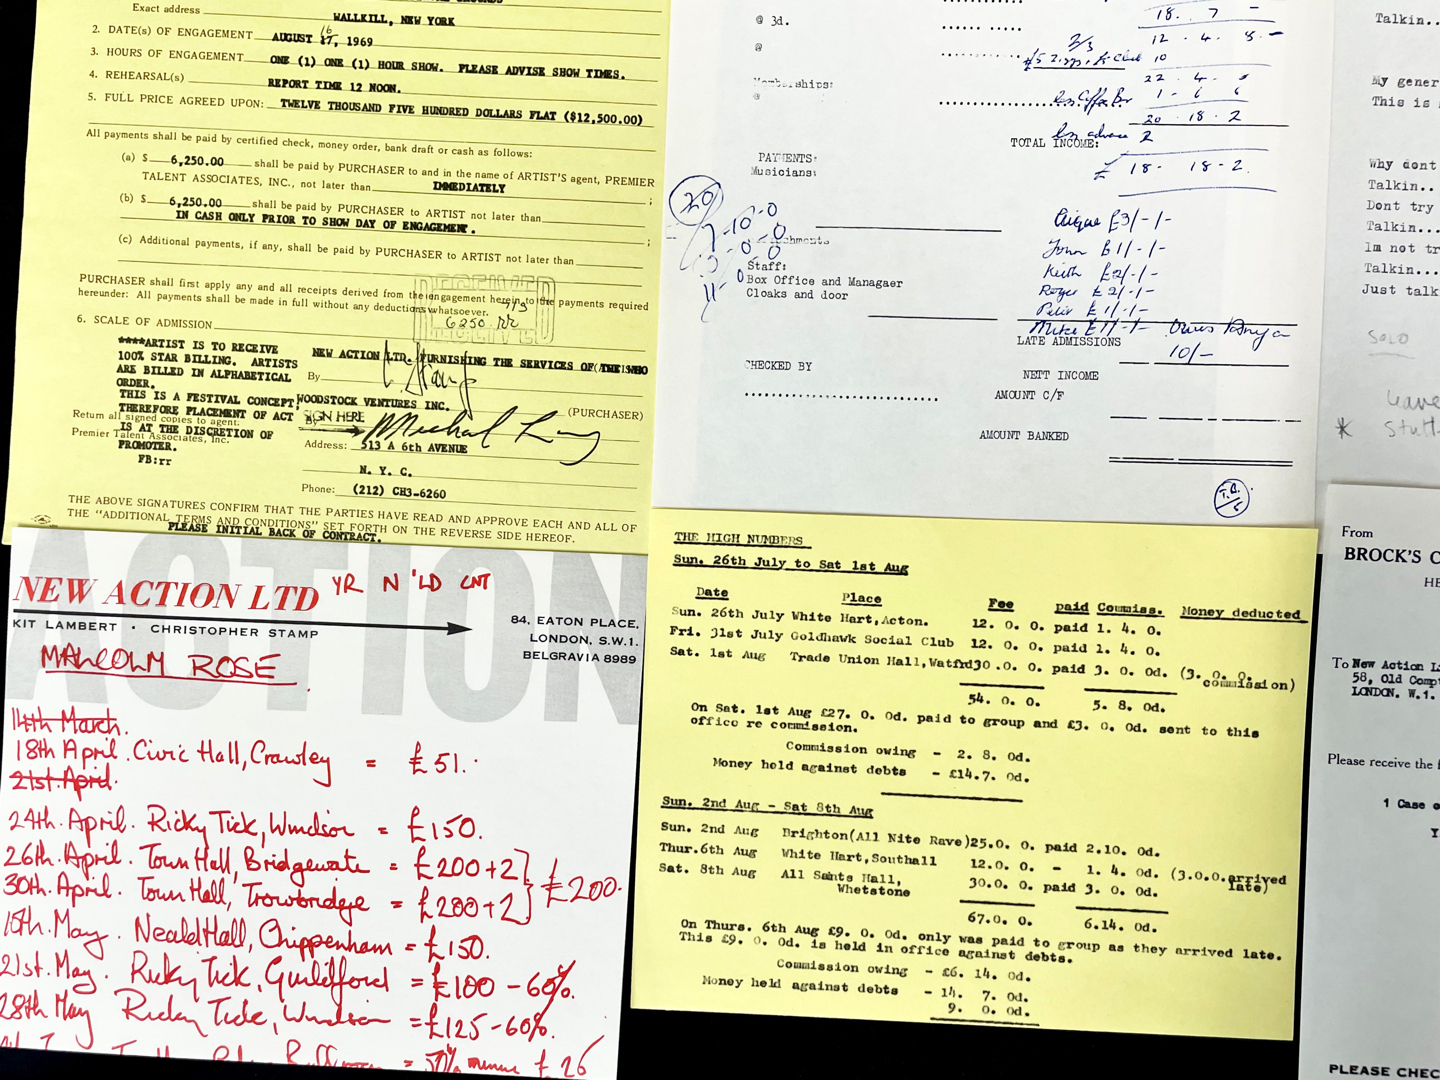 Exact address
WALLKILL, NEW YORK
2. DATE(S) OF ENGAGEMENT AUGUST 17, 1969
16
3. HOURS OF ENGAGEMENT ONE (1) ONE (1) HOUR SHOW. PLEASE ADVISE SHOW TIMES.
4. REHEARSAL(s) REPORT TIME 12 NOON.
5. FULL PRICE AGREED UPON: TWELVE THOUSAND FIVE HUNDRED DOLLARS FLAT ($12,500.00)
All payments shall be paid by certified check, money order, bank draft or cash as follows:
(a) $ 6,250.00 shall be paid by PURCHASER to and in the name of ARTIST'S agent, PREMIER
TALENT ASSOCIATES, INC., not later than IMMEDIATELY ;
(b) $ 6,250.00 shall be paid by PURCHASER to ARTIST not later than
IN CASH ONLY PRIOR TO SHOW DAY OF ENGAGEMENT. ;
(c) Additional payments, if any, shall be paid by PURCHASER to ARTIST not later than
PURCHASER shall first apply any and all receipts derived from the engagement herein to the payments required
hereunder: All payments shall be made in full without any deductions whatsoever.
RECEIVED
6250 RR
6. SCALE OF ADMISSION
****ARTIST IS TO RECEIVE
100% STAR BILLING. ARTISTS
ARE BILLED IN ALPHABETICAL
ORDER.
THIS IS A FESTIVAL CONCEPT
THEREFORE PLACEMENT OF ACT
IS AT THE DISCRETION OF
PROMOTER.
FB:rr
Return all signed copies to agent:
Premier Talent Associates, Inc.
NEW ACTION LTD. FURNISHING THE SERVICES OF THE WHO
By
WOODSTOCK VENTURES INC.
(PURCHASER)
SIGN HERE
By Michael Lang
Address: 513 A 6th AVENUE
N. Y. C.
Phone: (212) CH3-6260
THE ABOVE SIGNATURES CONFIRM THAT THE PARTIES HAVE READ AND APPROVE EACH AND ALL OF
THE "ADDITIONAL TERMS AND CONDITIONS" SET FORTH ON THE REVERSE SIDE HEREOF.
PLEASE INITIAL BACK OF CONTRACT.
@ 3d.
@
Memberships:
@
18. 7 -
2/3 12 . 4 . 8 . -
10
22 . 4 .
Less Coffee Bar 1 - 6 6
20 . 18 . 2
less advance 2
TOTAL INCOME:
£ 18 - 18 - 2.
PAYMENTS:
Musicians:
20
7-10-0
Staff:
Box Office and Managaer
Cloaks and door
£3/-/-
John £1/-/-
Keith £2/-/-
Roger £2/-/-
Peter £1/-/-
Mike £1/-/-
LATE ADMISSIONS
10/-
NETT INCOME
CHECKED BY
AMOUNT C/F
AMOUNT BANKED
Talkin..
My gener
This is
Why dont
Talkin..
Dont try
Talkin...
Im not tr
Talkin...
Just talk
SOLO
Leave
* Stutt
NEW ACTION LTD YR N 'LD CNT
KIT LAMBERT · CHRISTOPHER STAMP
84, EATON PLACE,
LONDON, S.W.1.
BELGRAVIA 8989
ACTION
MALCOLM ROSE.
14th March.
18th April. Civic Hall, Crawley = £51.
21st April.
24th. April. Ricky Tick, Windsor = £150.
26th. April. Town Hall, Bridgewate = £200+2
30th. April. Town Hall, Trowbridge = £200+2 } £200.
15th. May. Neald Hall, Chippenham = £150.
21st. May. Ricky Tick, Guildford = £100 - 60%.
28th May Ricky Tick, Windsor = £125 - 60%.
THE HIGH NUMBERS
Sun. 26th July to Sat 1st Aug
Date Place Fee paid Commiss. Money deducted
Sun. 26th July White Hart, Acton. 12. 0. 0. paid 1. 4. 0.
Fri. 31st July Goldhawk Social Club 12. 0. 0. paid 1. 4. 0.
Sat. 1st Aug Trade Union Hall, Watfrd 30 .0. 0. paid 3. 0. 0d. (3. 0. 0. commission)
54. 0. 0. 5. 8. 0d.
On Sat. 1st Aug £27. 0. 0d. paid to group and £3. 0. 0d. sent to this
office re commission.
Commission owing - 2. 8. 0d.
Money held against debts - £14.7. 0d.
Sun. 2nd Aug - Sat 8th Aug
Sun. 2nd Aug Brighton(All Nite Rave) 25.0. 0. paid 2.10. 0d.
Thur.6th Aug White Hart, Southall 12.0. 0. - 1. 4. 0d. (3.0.0.arrived late)
Sat. 8th Aug All Saints Hall, Whetstone 30.0. 0. paid 3. 0. 0d.
67.0. 0. 6.14. 0d.
On Thurs. 6th Aug £9. 0. 0d. only was paid to group as they arrived late.
This £9. 0. 0d. is held in office against debts.
Commission owing - £6. 14. 0d.
Money held against debts - 14. 7. 0d.
9. 0. 0d.
From
BROCK'S C
HE
To New Action L
58, Old Comp
LONDON. W.1.
Please receive the f
1 Case o
Y
PLEASE CHEC